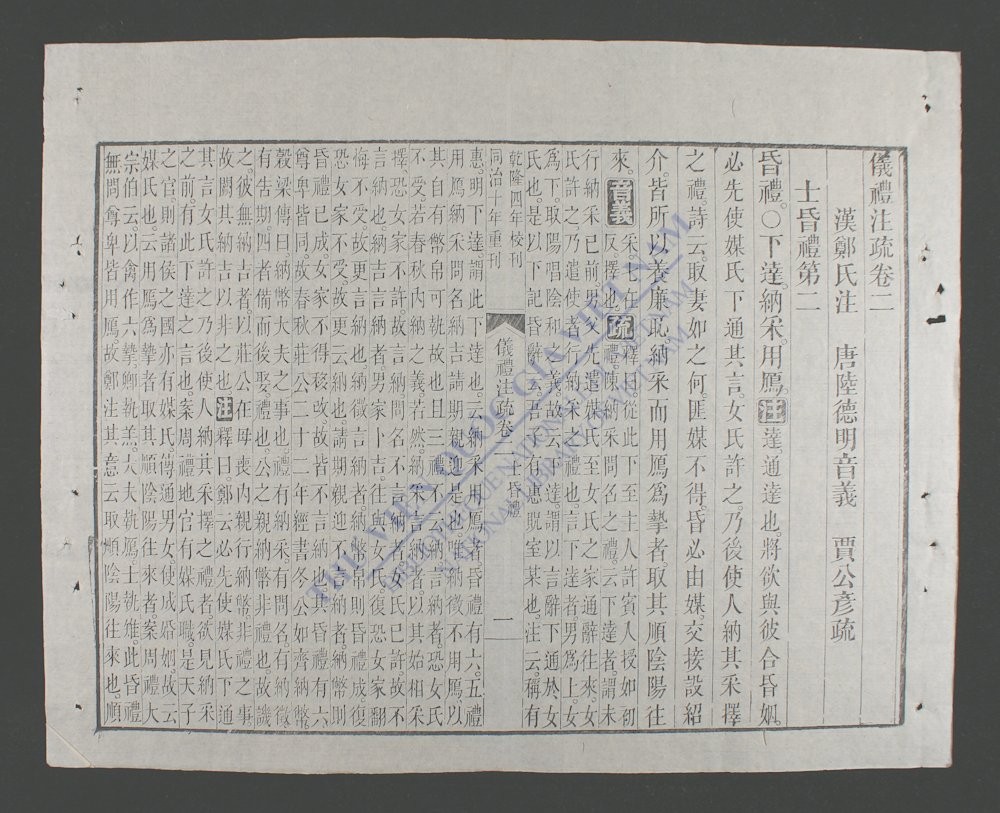 儀禮注疏卷二
漢鄭氏注 唐陸德明音義 賈公彥疏
士昏禮第二
昏禮。○下達。納采。用鴈。注達通達也。將欲與彼合昏姻。
必先使媒氏下通其言。女氏許之。乃後使人納其采擇
之禮。詩云。取妻如之何。匪媒不得。昏必由媒。交接設紹
介。皆所以養廉恥。納采而用鴈爲摯者。取其順陰陽往
來。音義采七在反擇也。疏釋曰。從此下至主人許賓入授如初
禮。陳納采問名之禮。云下達者。謂未
行納采已前。男父先遣媒氏至女氏之家通辭往來。女
氏許之。乃遣使者行納采之禮也。言下達者。男爲上。女
爲下。取陽唱陰和之義。故云下達。謂以言辭下通於女
氏也。是以下記昏辭云。吾子有惠貺室某也。注云。稱有
乾隆四年校刊
同治十年重刊
儀禮注疏卷二士昏禮 一
惠。明下達謂此下達也。云納采用鴈者。昏禮有六。五禮
用鴈。納采問名納吉請期親迎是也。唯納徵不用鴈。以
其自有幣帛可執故也。且三禮不云納。言納者。恐女氏
不受。若春秋內納之義。若然。納采言納者。以其始相采
擇。恐女家不許。故言納。問名不言納者。女氏已許。故不
言納也。納吉言納者。男家卜吉。往與女氏。復恐女家翻
悔不受。故更言納也。納徵言納者。納幣帛則昏禮成。復
恐女家不受。故更云納也。請期親迎不言納者。納幣則
昏禮已成。女家不得移改。故皆不言納也。其昏禮有六。
尊卑皆同。故春秋莊公二十二年經書。冬公如齊納幣。
穀梁傳曰。納幣大夫之事也。禮有納采。有問名。有納徵。
有告期。四者備而後娶。禮也。公之親納幣非禮也。故譏
之。彼無納吉者。以莊公在母喪內親行納幣非禮之事。
故闕其納吉以非之也。注釋曰。鄭云必先使媒氏下通
其言。女氏許之。乃後使人納其采擇之禮者。欲見納采
之前。有此下達之言也。案周禮地官有媒氏職。是天子
之官。則諸侯之國亦有媒氏。傳通男女。使成婚姻。故云
媒氏也。云用鴈爲摯者取其順陰陽往來者。案周禮大
宗伯云。以禽作六摯。卿執羔。大夫執鴈。士執雉。此昏禮
無問尊卑皆用鴈。故鄭注其意云取順陰陽往來也。順
THƯ VIỆN QUỐC GIA VIỆT NAM
BIBLIOTHÈQUE NATIONALE DU VIETNAM
NATIONAL LIBRARY OF VIETNAM